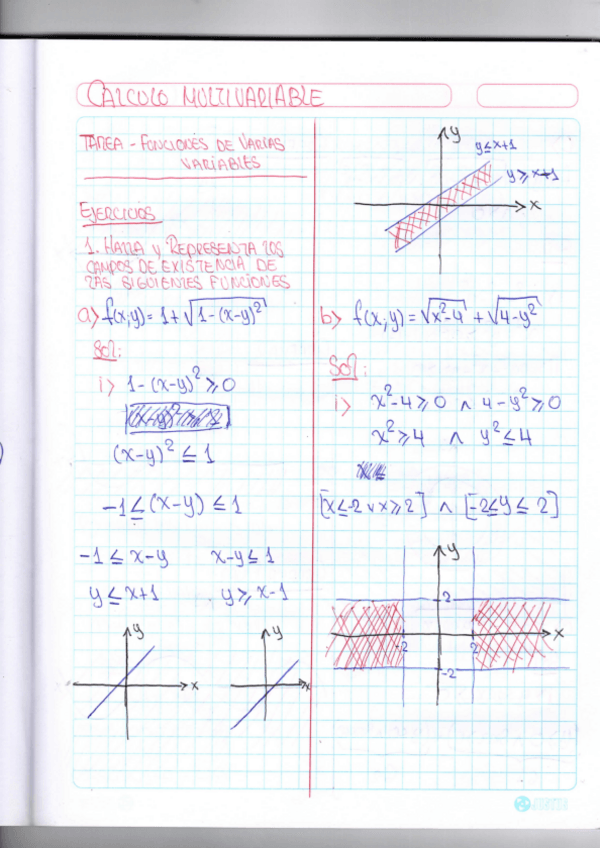 CALCULO MULTIVARIABLE
TAREA - FUNCIONES DE VARIAS
VARIABLES
EJERCICIOS
1. HALLA Y REPRESENTA LOS
CAMPOS DE EXISTENCIA DE
LAS SIGUIENTES FUNCIONES
a) f(x;y) = 1 + √(1-(x-y)²)
Sol:
i) 1-(x-y)² ≥ 0
(x-y)² ≤ 1
-1 ≤ (x-y) ≤ 1
-1 ≤ x-y x-y ≤ 1
y ≤ x+1 y ≥ x-1
y
x
y
x
y
y ≤ x+1
y ≥ x-1
x
b) f(x;y) = √(x²-4) + √(4-y²)
Sol:
i) x²-4 ≥ 0 ∧ 4-y² ≥ 0
x² ≥ 4 ∧ y² ≤ 4
[x ≤ -2 ∨ x ≥ 2] ∧ [-2 ≤ y ≤ 2]
y
2
x
-2 2
-2